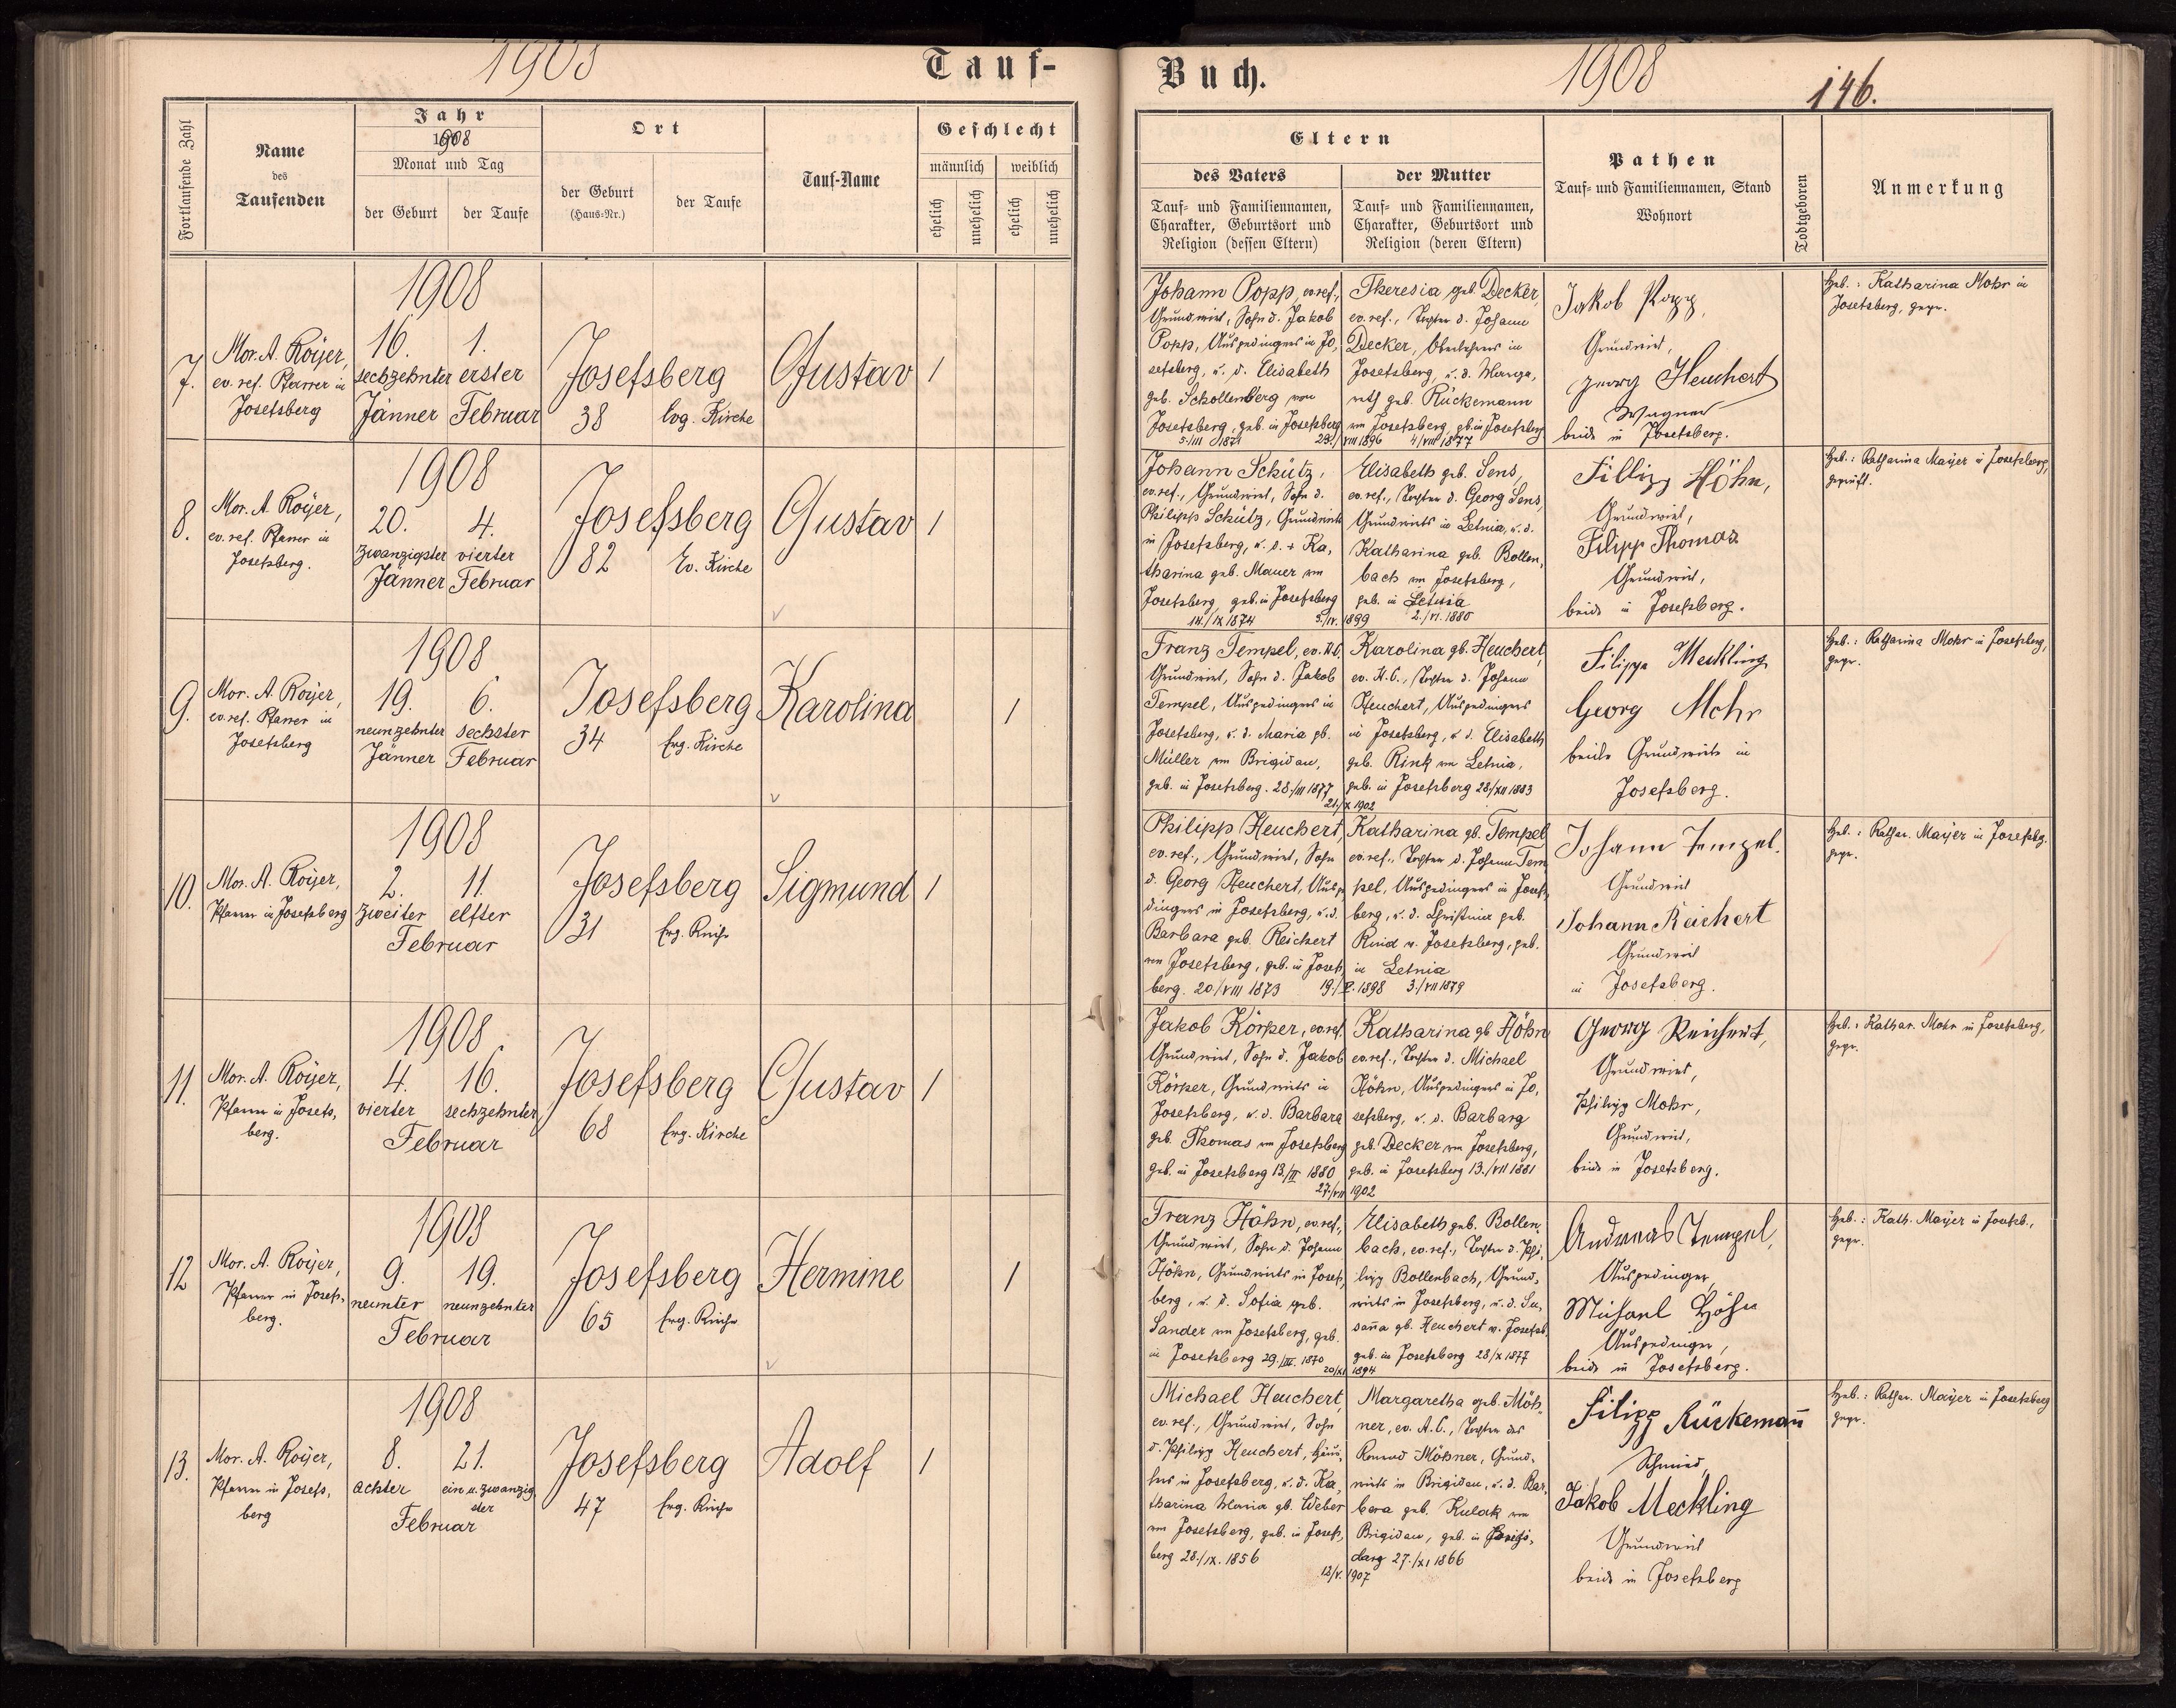 1908
Tauf-
Fortlaufende Zahl
Name
des
Taufenden
Jahr
1908
Monat und Tag
der Geburt
der Taufe
Ort
der Geburt
(Haus-Nr.)
der Taufe
Tauf-Name
Geschlecht
männlich
weiblich
ehelich
unehelich
ehelich
unehelich
7.
Mor. A. Royer,
ev. ref. Pfarrer in
Josefsberg
1908
16. 1.
sechzehnter erster
Jänner Februar
Josefsberg
38 Evg. Kirche
Gustav
1
8.
Mor. A. Royer,
ev. ref. Pfarrer in
Josefsberg.
1908
20. 4.
zwanzigster vierter
Jänner Februar
Josefsberg
82 Ev. Kirche
Gustav
1
9.
Mor. A. Royer,
ev. ref. Pfarrer in
Josefsberg
1908
19. 6.
neunzehnter sechster
Jänner Februar
Josefsberg
34 Evg. Kirche
Karolina
1
10.
Mor. A. Royer,
Pfarrer in Josefsberg
1908
2. 11.
zweiter elfter
Februar
Josefsberg
31 Evg. Kirche
Sigmund
1
11.
Mor. A. Royer,
Pfarrer in Josefs,
berg.
1908.
4. 16.
vierter sechzehnter
Februar
Josefsberg
68 Evg. Kirche
Gustav
1
12
Mor. A. Royer,
Pfarrer in Josefs,
berg.
1908
9. 19.
neunter neunzehnter
Februar
Josefsberg
65 Evg. Kirche
Hermine
1
13.
Mor. A. Royer,
Pfarrer in Josefs,
berg
1908
8. 21.
achter ein u. zwanzig
ster
Februar
Josefsberg
47 Evg. Kirche
Adolf
1
Buch.
1908
146.
Eltern
des Vaters
Tauf- und Familiennamen,
Charakter, Geburtsort und
Religion (dessen Eltern)
der Mutter
Tauf- und Familiennamen,
Charakter, Geburtsort und
Religion (deren Eltern)
Pathen
Tauf- und Familiennamen, Stand
Wohnort
Todtgeboren
Anmerkung
Johann Popp, ev. ref.,
Grundwirt, Sohn d. Jakob
Popp, Ausgedingers in Jo,
sefsberg, u. d. Elisabeth
geb. Schollenberg von
Josefsberg, geb. in Josefsberg
5./III 1871
Theresia geb. Decker,
ev. ref., Tochter d. Johann
Decker, Oberlehrers in
Josefsberg, u. d. Marga,
reth geb. Rückemann
von Josefsberg, gb. in Josefsberg
29./VIII 1896 4/VIII 1877
Jakob Popp,
Grundwirt,
Georg Heuchert
Wagner
beide in Josefsberg.
Heb.: Katharina Mohr in
Josefsberg, gepr.
Johann Schütz,
ev. ref., Grundwirt, Sohn d.
Philipp Schütz, Grundwirts
in Josefsberg, u. d. + Ka,
tharina geb. Mauer von
Josefsberg geb. in Josefsberg
14./IX 1874
Elisabeth geb. Sens,
ev. ref., Tochter d. Georg Sens,
Grundwirts in Letnia, u. d.
Katharina geb. Bollen,
bach von Josefsberg,
geb. in Letnia
5./IV. 1899 2./VI. 1880
Fillipp Höhn,
Grundwirt,
Filipp Thomas
Grundwirt,
beide in Josefsberg.
Heb.: Katharina Mayer in Josefsberg,
geprüft.
Franz Tempel, ev. H.C.,
Grundwirt, Sohn d. Jakob
Tempel, Ausgedingers in
Josefsberg, u. d. Maria gb.
Müller von Brigidau,
geb. in Josefsberg. 28./III 1877
Karolina gb. Heuchert,
ev. H.C., Tochter d. Johann
Heuchert, Ausgedingers
in Josefsberg, u. d. Elisabeth
geb. Rink von Letnia,
geb. in Josefsberg 28/XII 1883
21./X 1902
Filipp Meckling
Georg Mohr
beide Grundwirte in
Josefsberg.
Heb.: Katharina Mohr in Josefsberg,
gepr.
Philipp Heuchert,
ev. ref., Grundwirt, Sohn
d. Georg Heuchert, Ausge,
dingers in Josefsberg, u. d.
Barbara geb. Reichert
von Josefsberg, geb. in Josefs,
berg. 20./VIII 1873
Katharina gb. Tempel
ev. ref., Tochter d. Johann Tem,
pel, Ausgedingers in Josefs,
berg, u. d. Christine geb.
v. Josefsberg, geb.
in Letnia
1898 3./VII 1879
Johann Tempel.
Grundwirt
Johann Reichert
Grundwirt
in Josefsberg.
Heb.: Kathar. Mayer in Josefsbg.
gepr.
Jakob Körper, ev. ref.
Grundwirt, Sohn d. Jakob
Körper, Grundwirts in
Josefsberg, u. d. Barbara
geb. Thomas von Josefsberg
geb. in Josefsberg 13./II 1880
Katharina gb. Höhn
ev. ref., Tochter d. Michael
Höhn, Ausgedingers in Jo,
sefsberg, u. d. Barbara
geb. Decker von Josefsberg,
geb. in Josefsberg 13./VII 1881
27./VII 1902
Georg Reichert,
Grundwirt,
Philipp Mohr,
Grundwirt,
beide in Josefsberg.
Heb.: Kathar. Mohr in Josefsberg,
gepr.
Franz Höhn, ev. ref.,
Grundwirt, Sohn d. Johann
Höhn, Grundwirts in Josefs,
berg, u. d. Sofia geb.
Sander von Josefsberg, geb.
in Josefsberg 29./III. 1870
Elisabeth geb. Bollen,
bach, ev. ref., Tochter d. Phi,
lipp Bollenbach, Grund,
wirts in Josefsberg, u. d. Su,
sanna gb. Heuchert v. Josefsb.
geb. in Josefsberg 28/X 1877
20/XI 1894
Andreas Tempel,
Ausgedinger,
Michael Höhn
Ausgedinger,
beide in Josefsberg.
Heb.: Kath. Mayer in Josefsb.,
gepr.
Michael Heuchert,
ev. ref., Grundwirt, Sohn
d. Philipp Heuchert, Häus,
lers in Josefsberg, u. d. Ka,
tharina Maria gb. Weber
von Josefsberg, geb. in Josefs,
berg 28./IX. 1856
Margaretha geb. Möh,
ner, ev. A. C., Tochter des
Konrad Möhner, Grund,
wirts in Brigidau, u. d. Bar,
bara geb. Kulak von
Brigidau, geb. in
27./XI 1866
12/V. 1907
Filipp Rückemann
Schmied,
Jakob Meckling
Grundwirt
beide in Josefsberg
Heb.: Kathar. Mayer in Josefsberg
gepr.